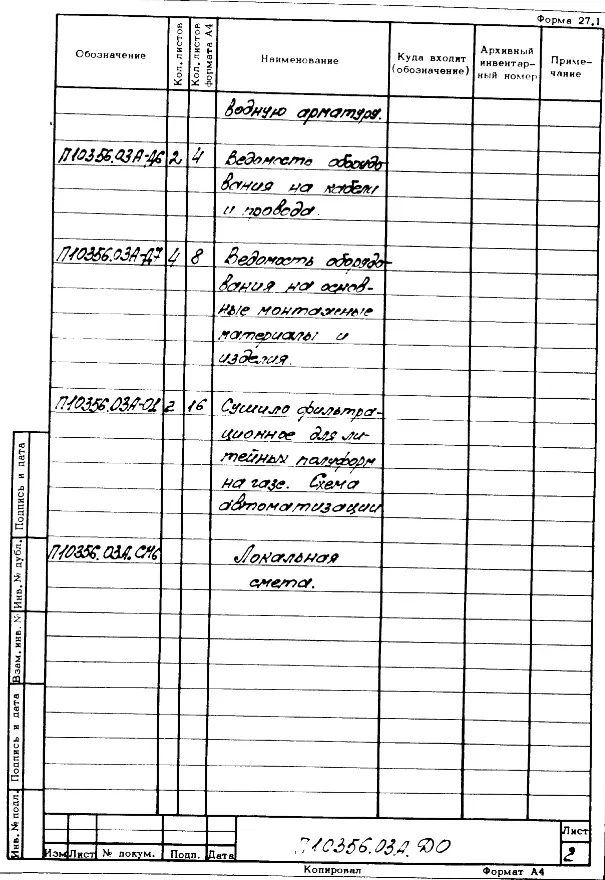 Форма 27.1
Обозначение Кол. листов Кол. листов формата А4 Наименование Куда входит (обозначение) Архивный инвентарный номер Примечание
водную арматуру.
П10356.03А-Д6 2 4 Ведомость оборудо
вания на кабели
и провода.
П10356.03А-Д7 4 8 Ведомость оборудо-
вания на основ-
ные монтажные
материалы и
изделия.
П10356.03А-01 2 16 Сушило фильтра-
ционное для ли-
тейных полуформ
на газе. Схема
автоматизации
П10356.03А.СМ6 Локальная
смета.
Инв. № подл. Подпись и дата Взам. инв. № Инв. № дубл. Подпись и дата
Изм Лист № докум. Подп. Дата
П10356.03А. ДО
Лист
2
Копировал Формат А4